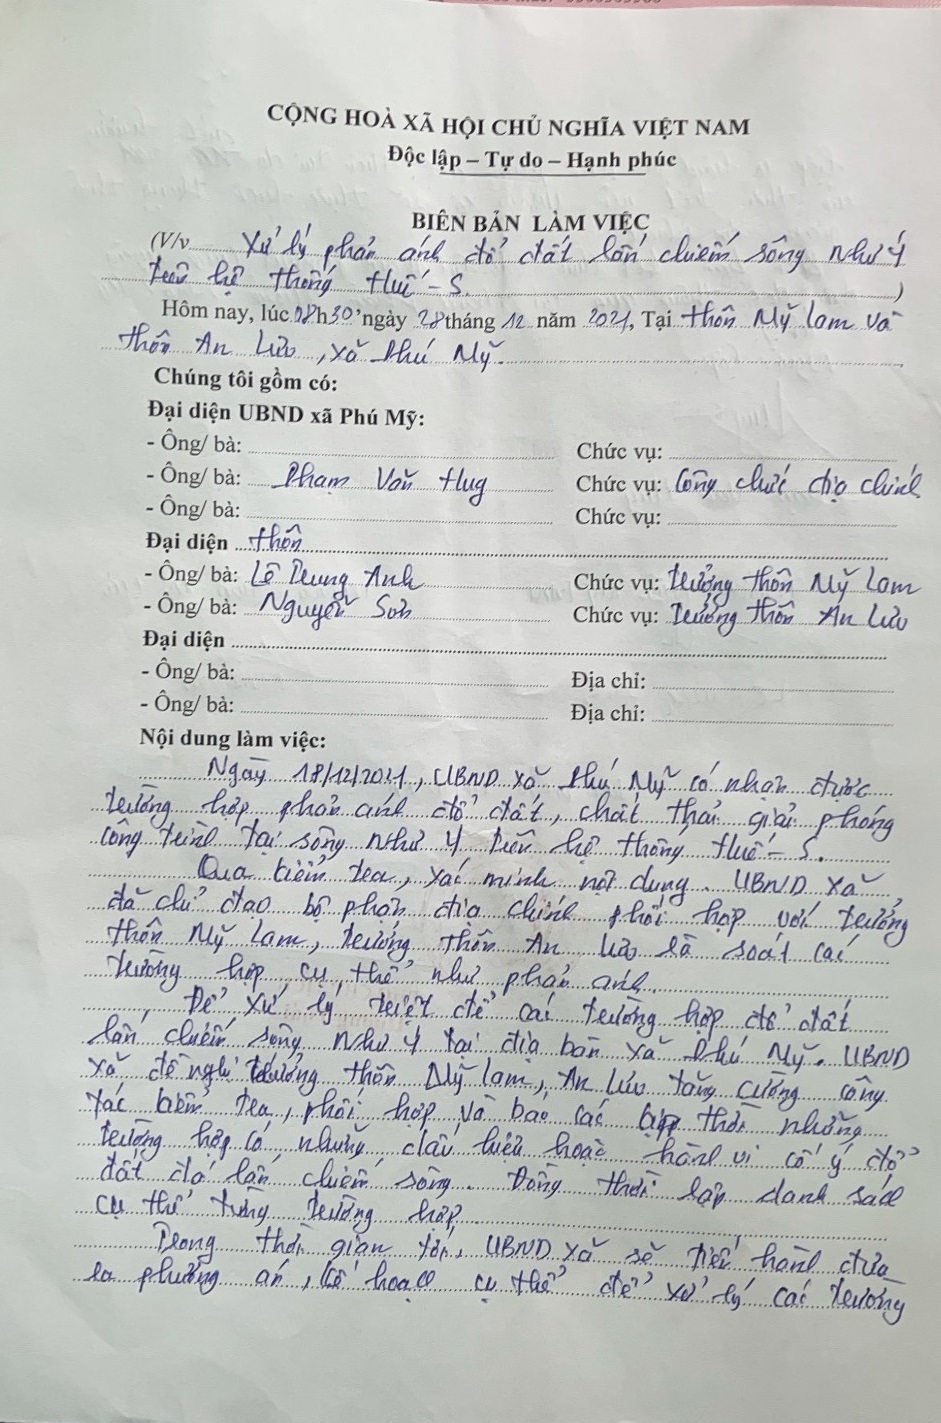 CỘNG HOÀ XÃ HỘI CHỦ NGHĨA VIỆT NAM
Độc lập – Tự do – Hạnh phúc
BIÊN BẢN LÀM VIỆC
(V/v Xử lý phản ánh đổ đất lấn chiếm sông Như Ý
trên hệ thống Huế - S.)
Hôm nay, lúc 08h30'ngày 28 tháng 12 năm 2021, Tại thôn Mỹ Lam và
thôn An Lưu, xã Phú Mỹ.
Chúng tôi gồm có:
Đại diện UBND xã Phú Mỹ:
- Ông/ bà: Chức vụ:
- Ông/ bà: Phạm Văn Hug Chức vụ: Công chức địa chính
- Ông/ bà: Chức vụ:
Đại diện thôn
- Ông/ bà: Lê Trung Anh Chức vụ: Trưởng thôn Mỹ Lam
- Ông/ bà: Nguyễn Sơn Chức vụ: Trưởng thôn An Lưu
Đại diện
- Ông/ bà: Địa chỉ:
- Ông/ bà: Địa chỉ:
Nội dung làm việc:
Ngày 18/12/2021, UBND xã Phú Mỹ có nhận được
trường hợp phản ánh đổ đất, chất thải giải phóng
công trình tại sông Như Ý trên hệ thống Huế - S.
Qua kiểm tra, xác minh nội dung. UBND xã
đã chỉ đạo bộ phận địa chính phối hợp với trưởng
thôn Mỹ Lam, trưởng thôn An Lưu rà soát các
trường hợp cụ thể như phản ánh.
Để xử lý triệt để các trường hợp đổ đất
lấn chiếm sông Như Ý tại địa bàn xã Phú Mỹ. UBND
xã đề nghị trưởng thôn Mỹ Lam, An Lưu tăng cường công
tác kiểm tra, phối hợp và báo cáo kịp thời những
trường hợp có những dấu hiệu hoặc hành vi cố ý đổ
đất đá lấn chiếm sông. Đồng thời lập danh sách
cụ thể từng trường hợp
Trong thời gian tới, UBND xã sẽ tiến hành đưa
ra phương án, kế hoạch cụ thể để xử lý các trường